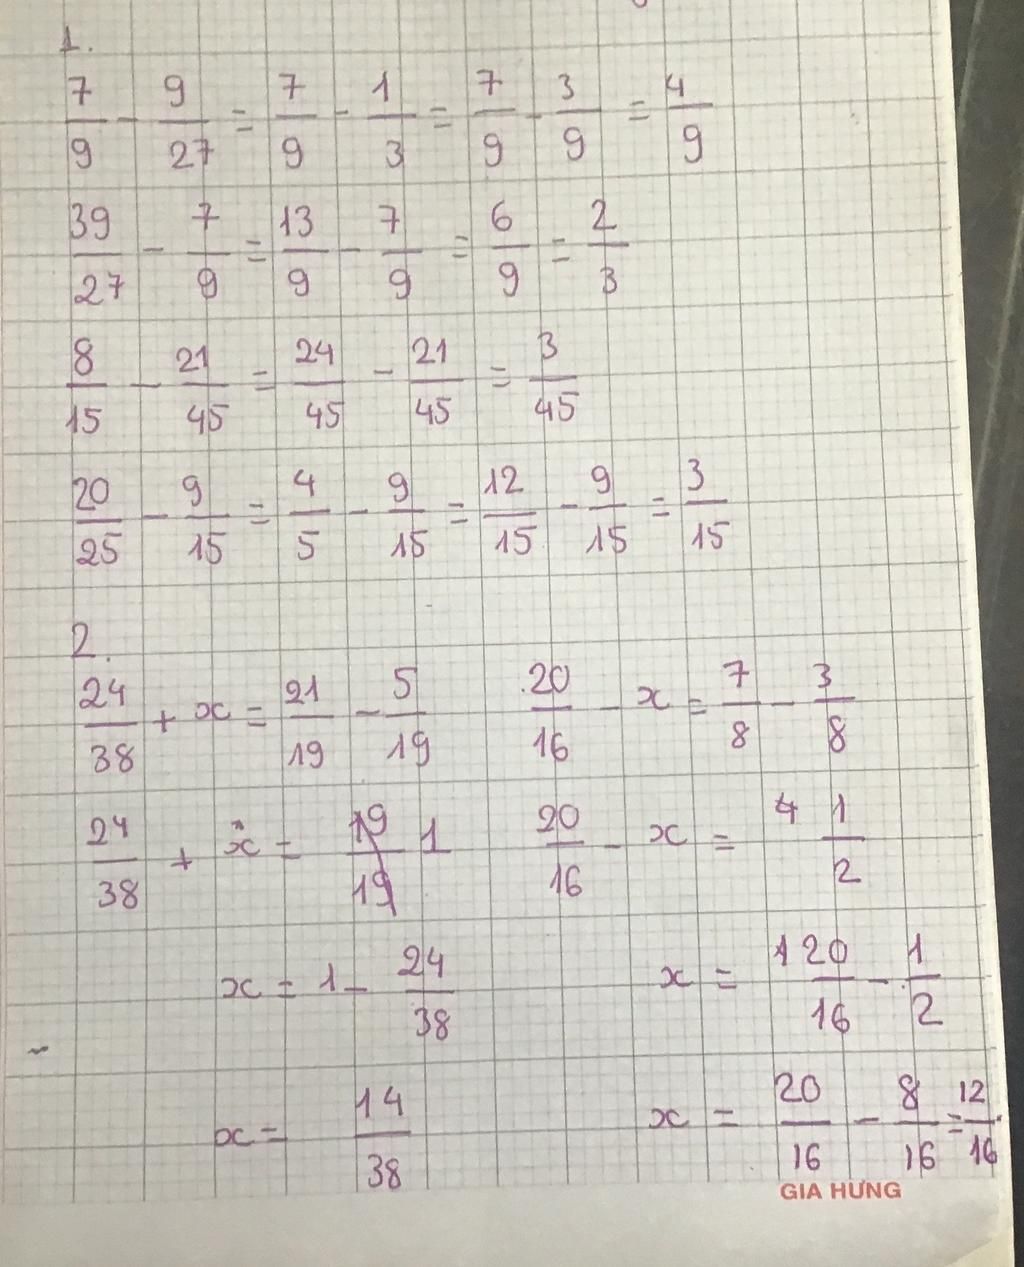 1.
7/9 - 9/27 = 7/9 - 1/3 = 7/9 - 3/9 = 4/9
39/27 - 7/9 = 13/9 - 7/9 = 6/9 = 2/3
8/15 - 21/45 = 24/45 - 21/45 = 3/45
20/25 - 9/15 = 4/5 - 9/15 = 12/15 - 9/15 = 3/15
2.
24/38 + x = 21/19 - 5/19
24/38 + x = 19/19 1
x = 1 - 24/38
x = 14/38
20/16 - x = 7/8 - 3/8
20/16 - x = 4 1/2
x = 1 20/16 - 1/2
x = 20/16 - 8/16 = 12/16
GIA HƯNG